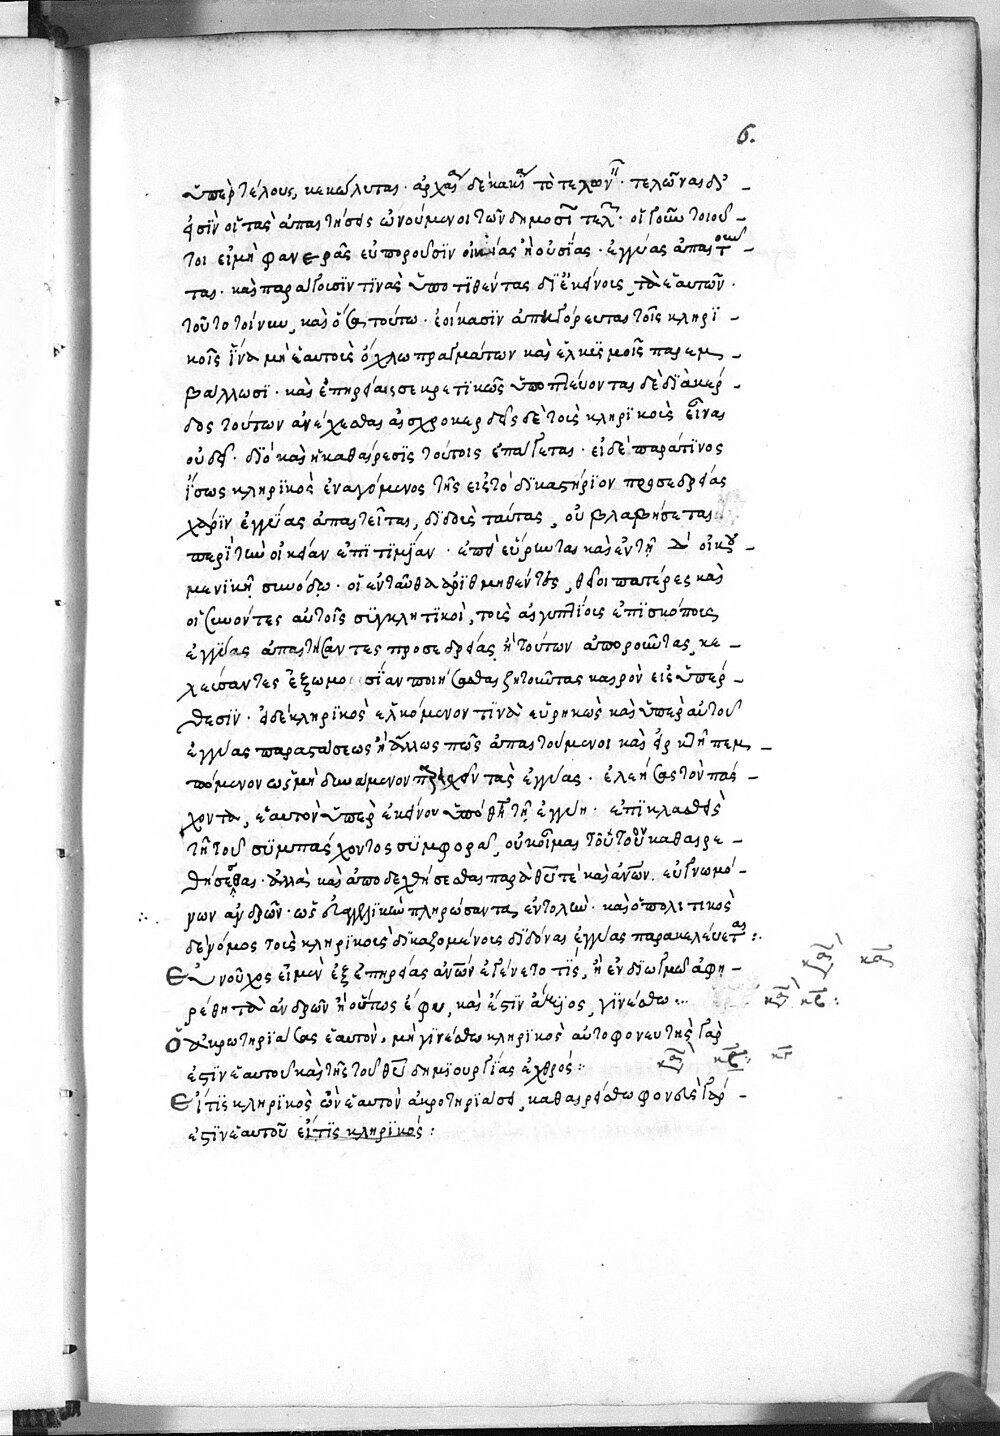 6.
ὑπὲρ τέλους, κεκώλυται· ἀρχαὶ δὲ κακαὶ τὸ τελωνεῖν· τελώνας δὲ
φησὶν οἵτινες ἀπαιτήσεις ὠνούμενοι τῶν δημοσίων τελῶν· οἱ γοῦν τοιοῦ-
τοι εἰ μὴ φανερᾶς εὐποροῦσιν οἰκίας ἢ οὐσίας· ἐγγύας ἀπαιτοῦν-
ται· καὶ παράγουσίν τινας ὑποτιθέντας δι' ἐκείνοις τὰ ἑαυτῶν·
τοῦτο τοίνυν, καὶ ὅσα τούτω· ἐοίκασιν ἀπηγόρευται τοῖς κληρι-
κοῖς ἵνα μὴ ἑαυτοὺς ὄχλω πραγμάτων καὶ ἑλκυσμοῖς παρεμ-
βάλλωσι· καὶ ἐπηρείαις σεκρετικαῖς ὑποπλεύοντας δὲ διὰ κέρ-
δος τούτων ἀνέχεσθαι αἰσχροκερδεῖς δὲ τοὺς κληρικοὺς εἶναι
οὐ δεῖ· διὸ καὶ ἡ καθαίρεσις τούτοις ἐπάγεται· εἰ δὲ παρά τινος
ἴσως κληρικὸς ἐναγόμενος τῆς εἰς τὸ δικαστήριον προσεδρείας
χάριν ἐγγύας ἀπαιτεῖται, διδοὺς ταύτας, οὐ βλαβήσεται
περὶ τὴν οἰκείαν ἐπιτιμίαν· ἐπεὶ εὕρωνται καὶ ἐν τῇ δ' οἰκου-
μενικῇ συνόδω· οἱ ἐνταῦθα ἀριθμηθέντες, θεῖοι πατέρες καὶ
οἱ συνόντες αὐτοῖς συγκλητικοὶ, τοὺς αἰγυπτίους ἐπισκόπους
ἐγγύας ἀπαιτήσαντες προσεδρείας ἢ τούτων ἀποροῦντας, κε-
λεύσαντες ἐξωμοσίαν ποιήσασθαι ζητοῦντας καιρὸν εἰς ὑπέρ-
θεσιν· εἰ δὲ κληρικὸς ἑλκόμενον τινὰ εὑρηκὼς καὶ ὑπὲρ αὐτοῦ
ἐγγύας παραστάσεως ἢ ἄλλως πως ἀπαιτούμενον καὶ εἱρκτῇ πεμ-
πόμενον ὡς μὴ δυνάμενον παρέχειν τὰς ἐγγύας· ἐλεήσας τὸν πάσ-
χοντα, ἑαυτὸν ὑπὲρ ἐκείνου ὑπόθηται τῇ ἐγγύῃ· ἐπικλασθεὶς
τῇ τοῦ συμπάσχοντος συμφορᾷ, οὐκ οἶμαι τὸν τοιοῦτον καθαιρε-
θήσεσθαι· ἀλλὰ καὶ ἀποδεχθήσεσθαι παρὰ θεῶ τε καὶ ἀνθρώπων εὐγνωμό-
νων ἀνδρῶν· ὡς εὐαγγελικὴν πληρώσαντα, ἐντολὴν· καὶ ὁ πολιτικὸς
δὲ νόμος τοὺς κληρικοὺς δικαζομένους διδόναι ἐγγύας παρακελεύεται:
Εὐνοῦχος εἰ μὲν ἐξ ἐπηρείας ἀνθρώπων ἐγένετο τίς, ἢ ἐν διωγμῶ ἀφη-
ρέθη τὰ ἀνδρῶν ἢ οὕτως ἔφυ, καὶ ἐστὶν ἄξιος, γινέσθω:
Ὁ ἀκρωτηριάσας ἑαυτὸν, μὴ γινέσθω κληρικὸς αὐτοφονευτὴς γάρ
ἐστιν ἑαυτοῦ καὶ τῆς τοῦ θεοῦ δημιουργίας ἐχθρός:
Εἴ τις κληρικὸς ὢν ἑαυτὸν ἀκρωτηριάσει, καθαιρείσθω φονεὺς γάρ
ἐστιν ἑαυτοῦ εἴ τις κληρικός: